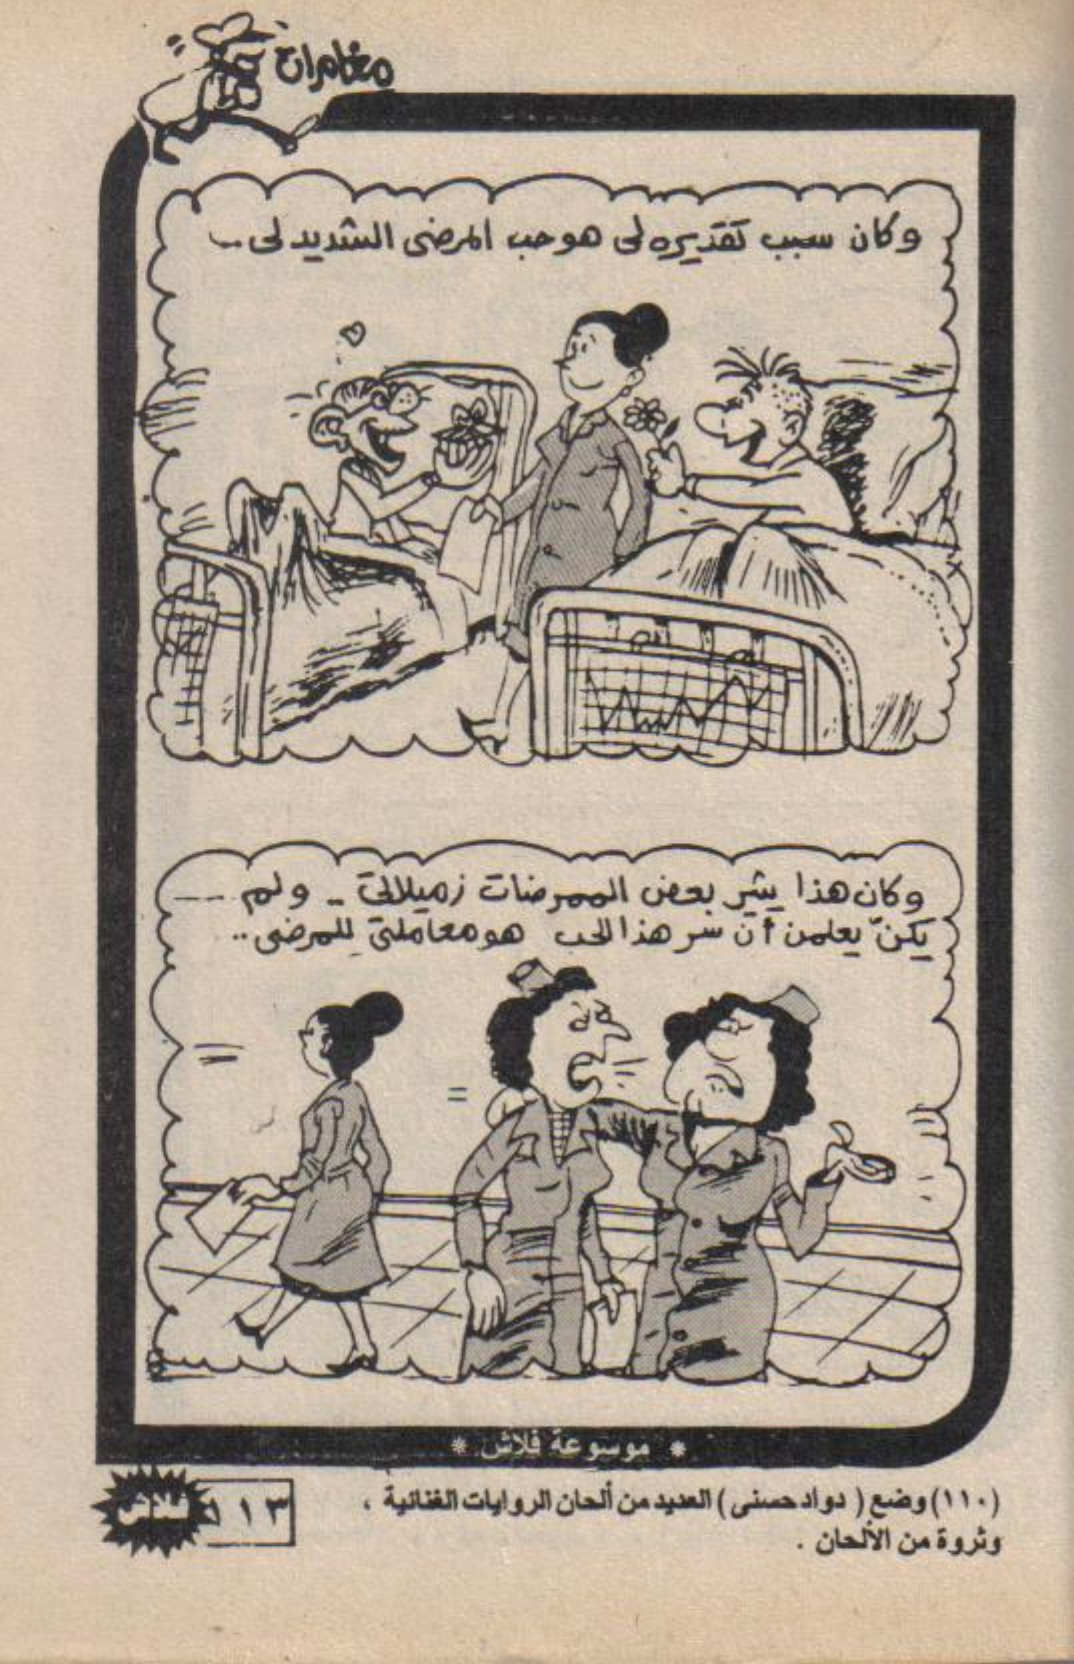 مغامرات
وكان سبب تقديره لى هو حب المرضى الشديد لى ..
وكان هذا يثير بعض الممرضات زميلاتى .. ولم
يكنّ يعلمن أن سر هذا الحب هو معاملتى للمرضى ..
* موسوعة فلاش *
(١١٠) وضع ( دواد حسنى ) العديد من ألحان الروايات الغنائية ،
وثروة من الألحان .
١١٣
فلاش